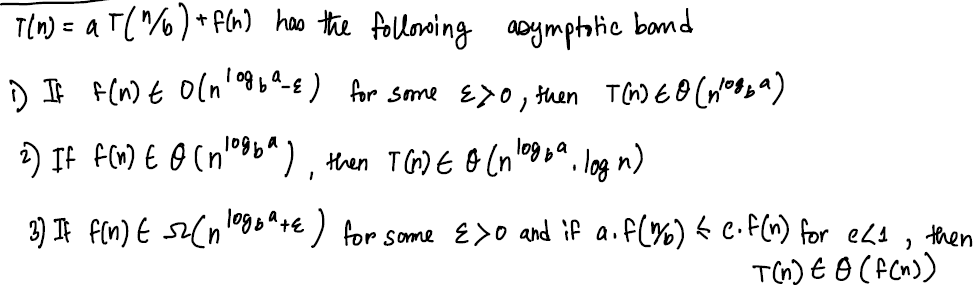 T(n) = a T(n/b) + f(n) has the following asymptotic bond
1) If f(n) ∈ O(n^{log_b a - ε}) for some ε > 0, then T(n) ∈ θ(n^{log_b a})
2) If f(n) ∈ θ(n^{log_b a}), then T(n) ∈ θ(n^{log_b a}. log n)
3) If f(n) ∈ Ω(n^{log_b a + ε}) for some ε > 0 and if a. f(n/b) ≤ c. f(n) for c<1, then
T(n) ∈ θ(f(n))